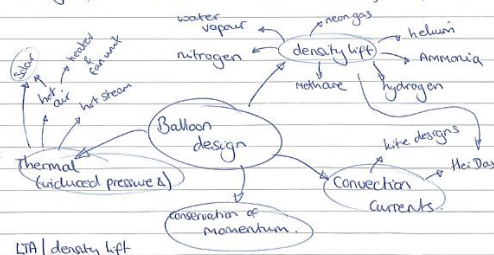 water
vapour
neon gas
helium
nitrogen
density lift
Ammonia
Methane
hydrogen
solar
heater
&
fan unit
hot
air
hot steam
Balloon
design
kite designs
Hei Das
Thermal
(induced pressure Δ)
Convection
Currents.
Conservation of
momentum.
LTA / density lift